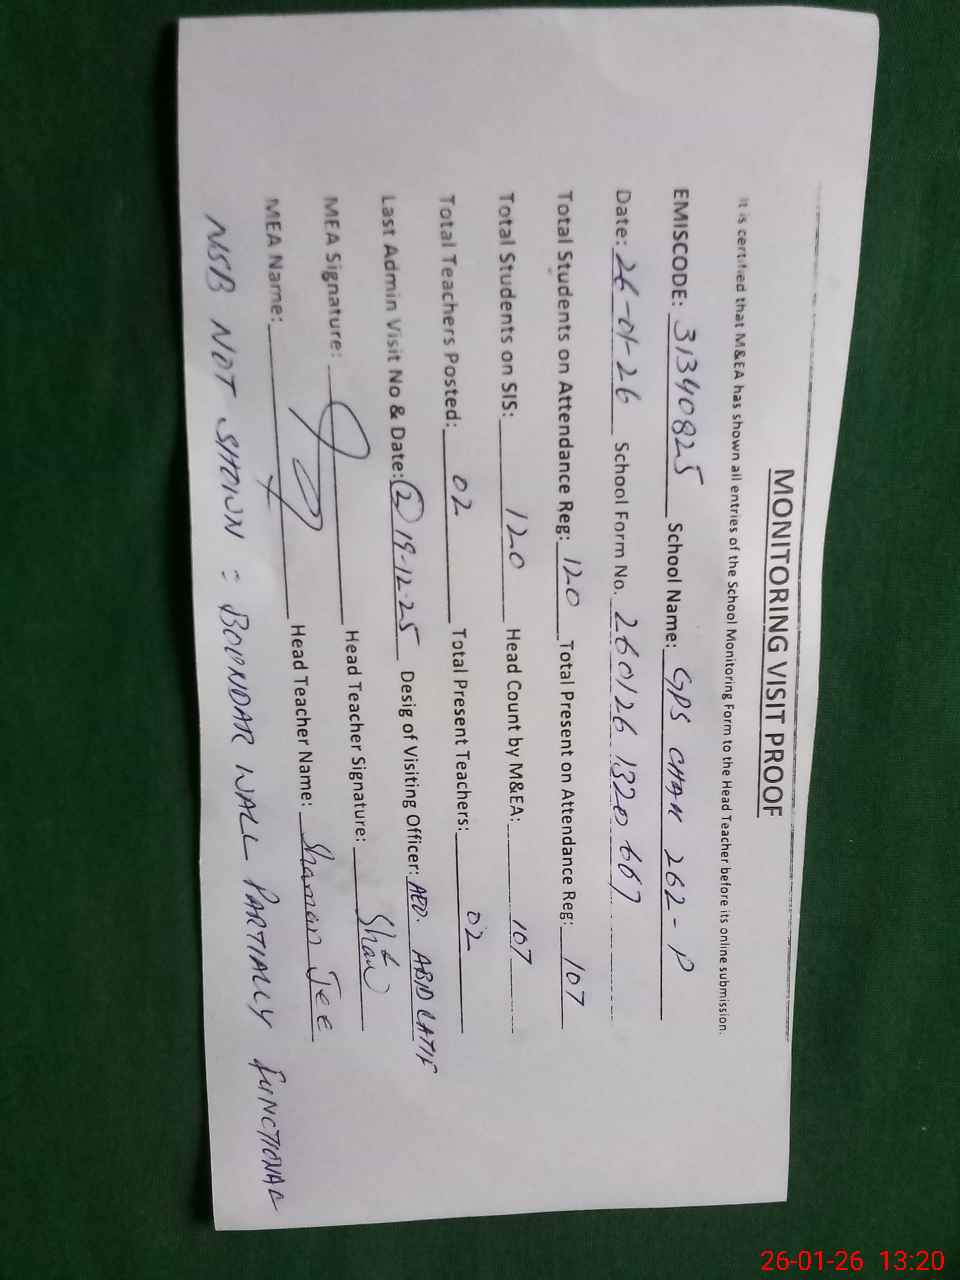 MONITORING VISIT PROOF
It is certified that M&EA has shown all entries of the School Monitoring Form to the Head Teacher before its online submission.
EMISCODE: 31340825 School Name: GPS CHAK 262-P
Date: 26-01-26 School Form No. 260126 1320 667
Total Students on Attendance Reg: 120 Total Present on Attendance Reg: 107
Total Students on SIS: 120 Head Count by M&EA: 107
Total Teachers Posted: 02 Total Present Teachers: 02
Last Admin Visit No & Date: (2) 19-12-25 Desig of Visiting Officer: AEO. ABID LATIF
MEA Signature: Head Teacher Signature: Shan
MEA Name: Head Teacher Name: Shaman Jee
NSB NOT SHOWN = BOUNDAR WALL PARTIALLY FUNCTIONAL
26-01-26 13:20